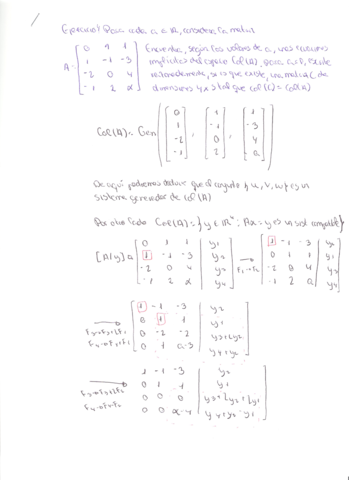 Ejercicio 1 Para cada a ∈ ℝ, considere la matriz
A = [ 0 1 1 ; 1 -1 -3 ; -2 0 4 ; -1 2 a ]
Encuentre, según los valores de a, unas ecuaciones
implícitas del espacio Col(A), para a=0,
razonadamente, si es que existe, una matriz C de
dimensiones 4x3 tal que Col(C) = Col(A)
Col(A) = Gen { ( 0 1 -2 -1 ) , ( 1 -1 0 2 ) , ( 1 -3 4 a ) }
De aquí podremos deducir que el conjunto {u, v, w} es un
sistema generador de Col(A)
Por otro lado Col(A) = { y ∈ ℝ⁴ : Ax = y es un sist compatible }
[A|y] =
0 1 1 | y₁
1 -1 -3 | y₂
-2 0 4 | y₃
-1 2 a | y₄
F₁↔F₂
1 -1 -3 | y₂
0 1 1 | y₁
-2 0 4 | y₃
-1 2 a | y₄
F₃→F₃+2F₁
F₄→F₄+F₁
1 -1 -3 | y₂
0 1 1 | y₁
0 -2 -2 | y₃+2y₂
0 1 a-3 | y₄+y₂
F₃→F₃+2F₂
F₄→F₄-F₂
1 -1 -3 | y₂
0 1 1 | y₁
0 0 0 | y₃+2y₂+2y₁
0 0 a-4 | y₄+y₂-y₁